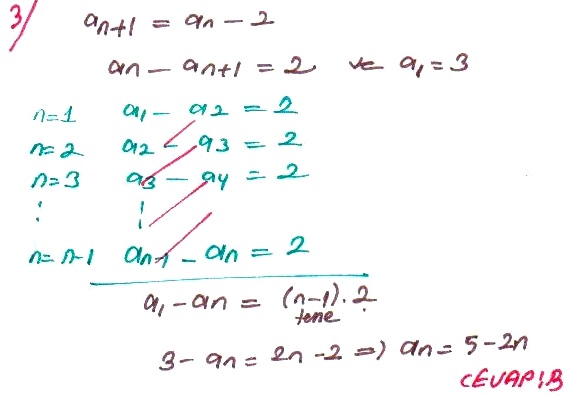 3/ aₙ₊₁ = aₙ - 2
aₙ - aₙ₊₁ = 2 ve a₁ = 3
n=1 a₁ - a₂ = 2
n=2 a₂ - a₃ = 2
n=3 a₃ - a₄ = 2
⋮ ⋮
n=n-1 aₙ₋₁ - aₙ = 2
a₁ - aₙ = (n-1).2
tane
3 - aₙ = 2n - 2 => aₙ = 5 - 2n
CEVAP:B